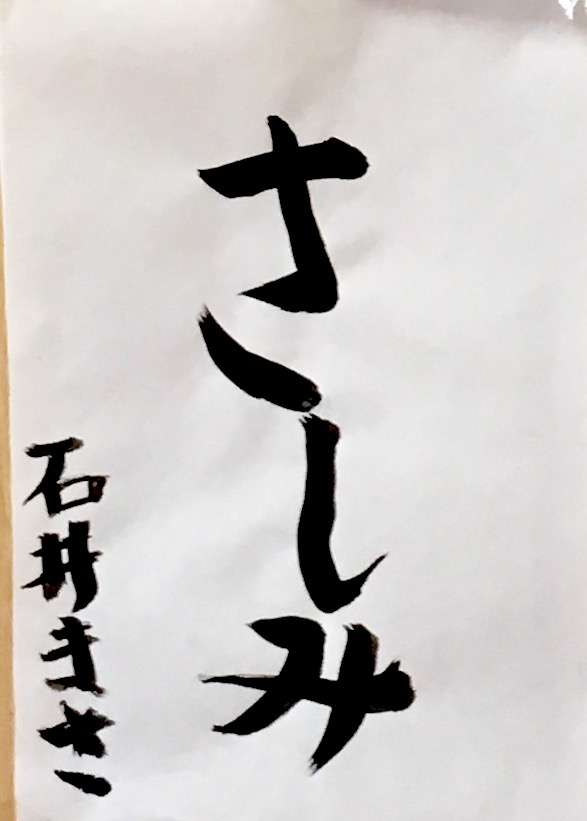 さしみ
石井まさ